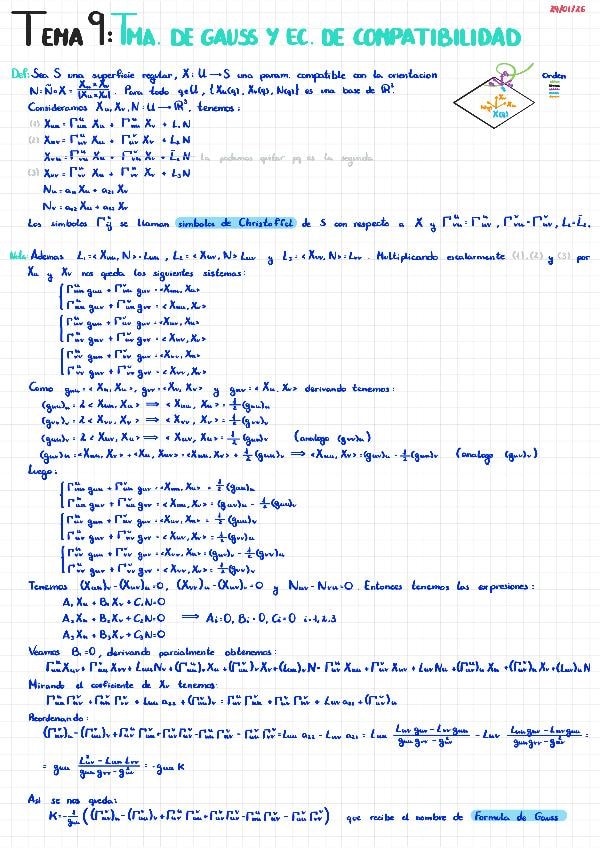 29/01/26
TEMA 9: TMA. DE GAUSS Y EC. DE COMPATIBILIDAD
Def: Sea S una superficie regular, X: U → S una param. compatible con la orientacion
N: Ñ∘X = (Xu × Xv)/|Xu × Xv|. Para todo q∈U, {Xu(q), Xv(q), N(q)} es una base de ℝ³.
Orden
Consideramos Xu, Xv, N: U → ℝ³, tenemos:
(1) Xuu = Γᵘuu Xu + Γᵛuu Xv + L₁N
(2) Xuv = Γᵘuv Xu + Γᵛuv Xv + L₂N
Xvu = Γᵘvu Xu + Γᵛvu Xv + L̄₂N La podemos quitar pq es la segunda
(3) Xvv = Γᵘvv Xu + Γᵛvv Xv + L₃N
Nu = a₁₁ Xu + a₂₁ Xv
Nv = a₁₂ Xu + a₂₂ Xv
Los simbolos Γᵏij se llaman simbolos de Christoffel de S con respecto a X y Γᵘvu = Γᵘuv, Γᵛvu = Γᵛuv, L₂ = L̄₂.
Nota: Ademas L₁ = <Xuu, N> = Luu, L₂ = <Xuv, N> = Luv y L₃ = <Xvv, N> = Lvv. Multiplicando escalarmente (1), (2) y (3) por
Xu y Xv nos queda los siguientes sistemas:
Γᵘuu guu + Γᵛuu guv = <Xuu, Xu>
Γᵘuu guv + Γᵛuu gvv = <Xuu, Xv>
Γᵘuv guu + Γᵛuv guv = <Xuv, Xu>
Γᵘuv guv + Γᵛuv gvv = <Xuv, Xv>
Γᵘvv guu + Γᵛvv guv = <Xvv, Xu>
Γᵘvv guv + Γᵛvv gvv = <Xvv, Xv>
Como guu = <Xu, Xu>, gvv = <Xv, Xv> y guv = <Xu, Xv> derivando tenemos:
(guu)u = 2<Xuu, Xu> ⟹ <Xuu, Xu> = ½(guu)u
(gvv)v = 2<Xvv, Xv> ⟹ <Xvv, Xv> = ½(gvv)v
(guu)v = 2<Xuv, Xu> ⟹ <Xuv, Xu> = ½(guu)v (analogo (gvv)u)
(guv)u = <Xuu, Xv> + <Xu, Xuv> = <Xuu, Xv> + ½(guu)v ⟹ <Xuu, Xv> = (guv)u - ½(guu)v (analogo (guv)v)
Luego:
Γᵘuu guu + Γᵛuu guv = <Xuu, Xu> = ½(guu)u
Γᵘuu guv + Γᵛuu gvv = <Xuu, Xv> = (guv)u - ½(guu)v
Γᵘuv guu + Γᵛuv guv = <Xuv, Xu> = ½(guu)v
Γᵘuv guv + Γᵛuv gvv = <Xuv, Xv> = ½(gvv)u
Γᵘvv guu + Γᵛvv guv = <Xvv, Xu> = (guv)v - ½(gvv)u
Γᵘvv guv + Γᵛvv gvv = <Xvv, Xv> = ½(gvv)v
Tenemos (Xuu)v - (Xuv)u = 0, (Xvv)u - (Xuv)v = 0 y Nuv - Nvu = 0. Entonces tenemos las expresiones:
A₁Xu + B₁Xv + C₁N = 0
A₂Xu + B₂Xv + C₂N = 0 ⟹ Ai = 0, Bi = 0, Ci = 0 i = 1,2,3
A₃Xu + B₃Xv + C₃N = 0
Veamos B₁ = 0, derivando parcialmente obtenemos:
Γᵘuu Xuv + Γᵛuu Xvv + Luu Nv + (Γᵘuu)v Xu + (Γᵛuu)v Xv + (Luu)v N = Γᵘuv Xuu + Γᵛuv Xuv + Luv Nu + (Γᵘuv)u Xu + (Γᵛuv)u Xv + (Luv)u N
Mirando el coeficiente de Xv tenemos:
Γᵘuu Γᵛuv + Γᵛuu Γᵛvv + Luu a₂₂ + (Γᵛuu)v = Γᵘuv Γᵛuu + Γᵛuv Γᵛuv + Luv a₂₁ + (Γᵛuv)u
Reordenando:
(Γᵛuv)u - (Γᵛuu)v + Γᵘuv Γᵛuu + Γᵛuv Γᵛuv - Γᵘuu Γᵛuv - Γᵛuu Γᵛvv = Luu a₂₂ - Luv a₂₁ = Luu (Luv guv - Lvv guu)/(guu gvv - g²uv) - Luv (Luu guv - Luv guu)/(guu gvv - g²uv) =
= guu (L²uv - Luu Lvv)/(guu gvv - g²uv) = -guu K
Asi se nos queda:
K = -1/guu ((Γᵛuv)u - (Γᵛuu)v + Γᵘuv Γᵛuu + Γᵛuv Γᵛuv - Γᵘuu Γᵛuv - Γᵛuu Γᵛvv) que recibe el nombre de Formula de Gauss